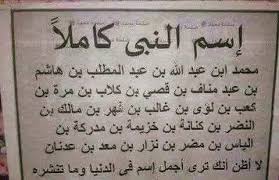 إسم النبى كاملاً
محمد ابن عبد الله بن عبد المطلب بن هاشم
بن عبد مناف بن قصي بن كلاب بن مرة بن
كعب بن لوى بن غالب بن فهر بن مالك بن
النضر بن كنانة بن خزيمة بن مدركة بن
الياس بن مضر بن نزار بن معد بن عدنان
لا أظن أنك ترى أجمل إسم فى الدنيا وما تنشره